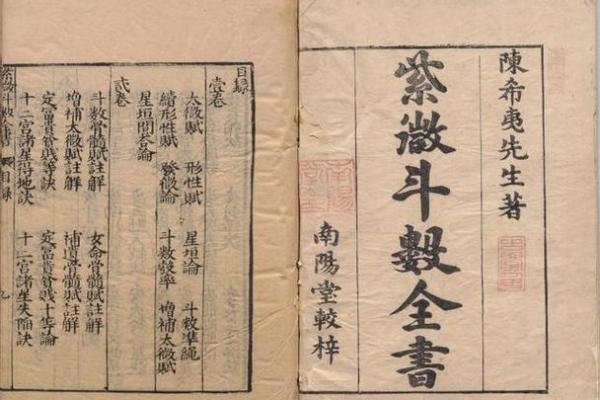 陳希夷先生著
紫微斗數全書
南陽堂較梓
目錄
壹卷
太微賦　形性賦　星垣論　斗數準繩
續形性賦　發微論　斗數彀率　增補太微賦
星垣問答論
貳卷
斗數骨髓賦註解　女命骨髓賦註解
增補太微賦註解　補遺骨髓賦註解
定富貴貧賤等訣　定富貴貧賤十等論
十二宮諸星得地訣　十二宮諸星失陷訣
斗數全書　目錄